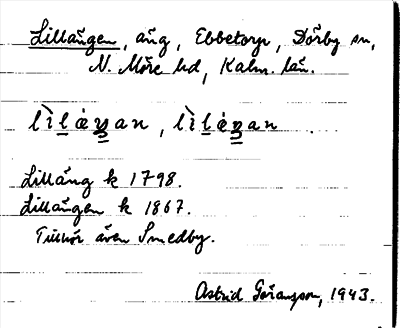 Lillängen, äng, Ebbetorp, Dörby sn,
N. Möre hd, Kalm. län.
Lilläng k 1798.
Lillängen k 1867.
Tillhör även Smedby.
Astrid Göransson, 1943.